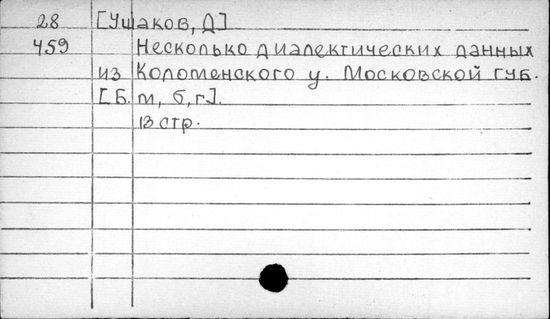 28 [Ушаков, Д]
459 Несколько диалектических данных
из Коломенского у. Московской губ.
[Б. м, б, г].
13 стр.